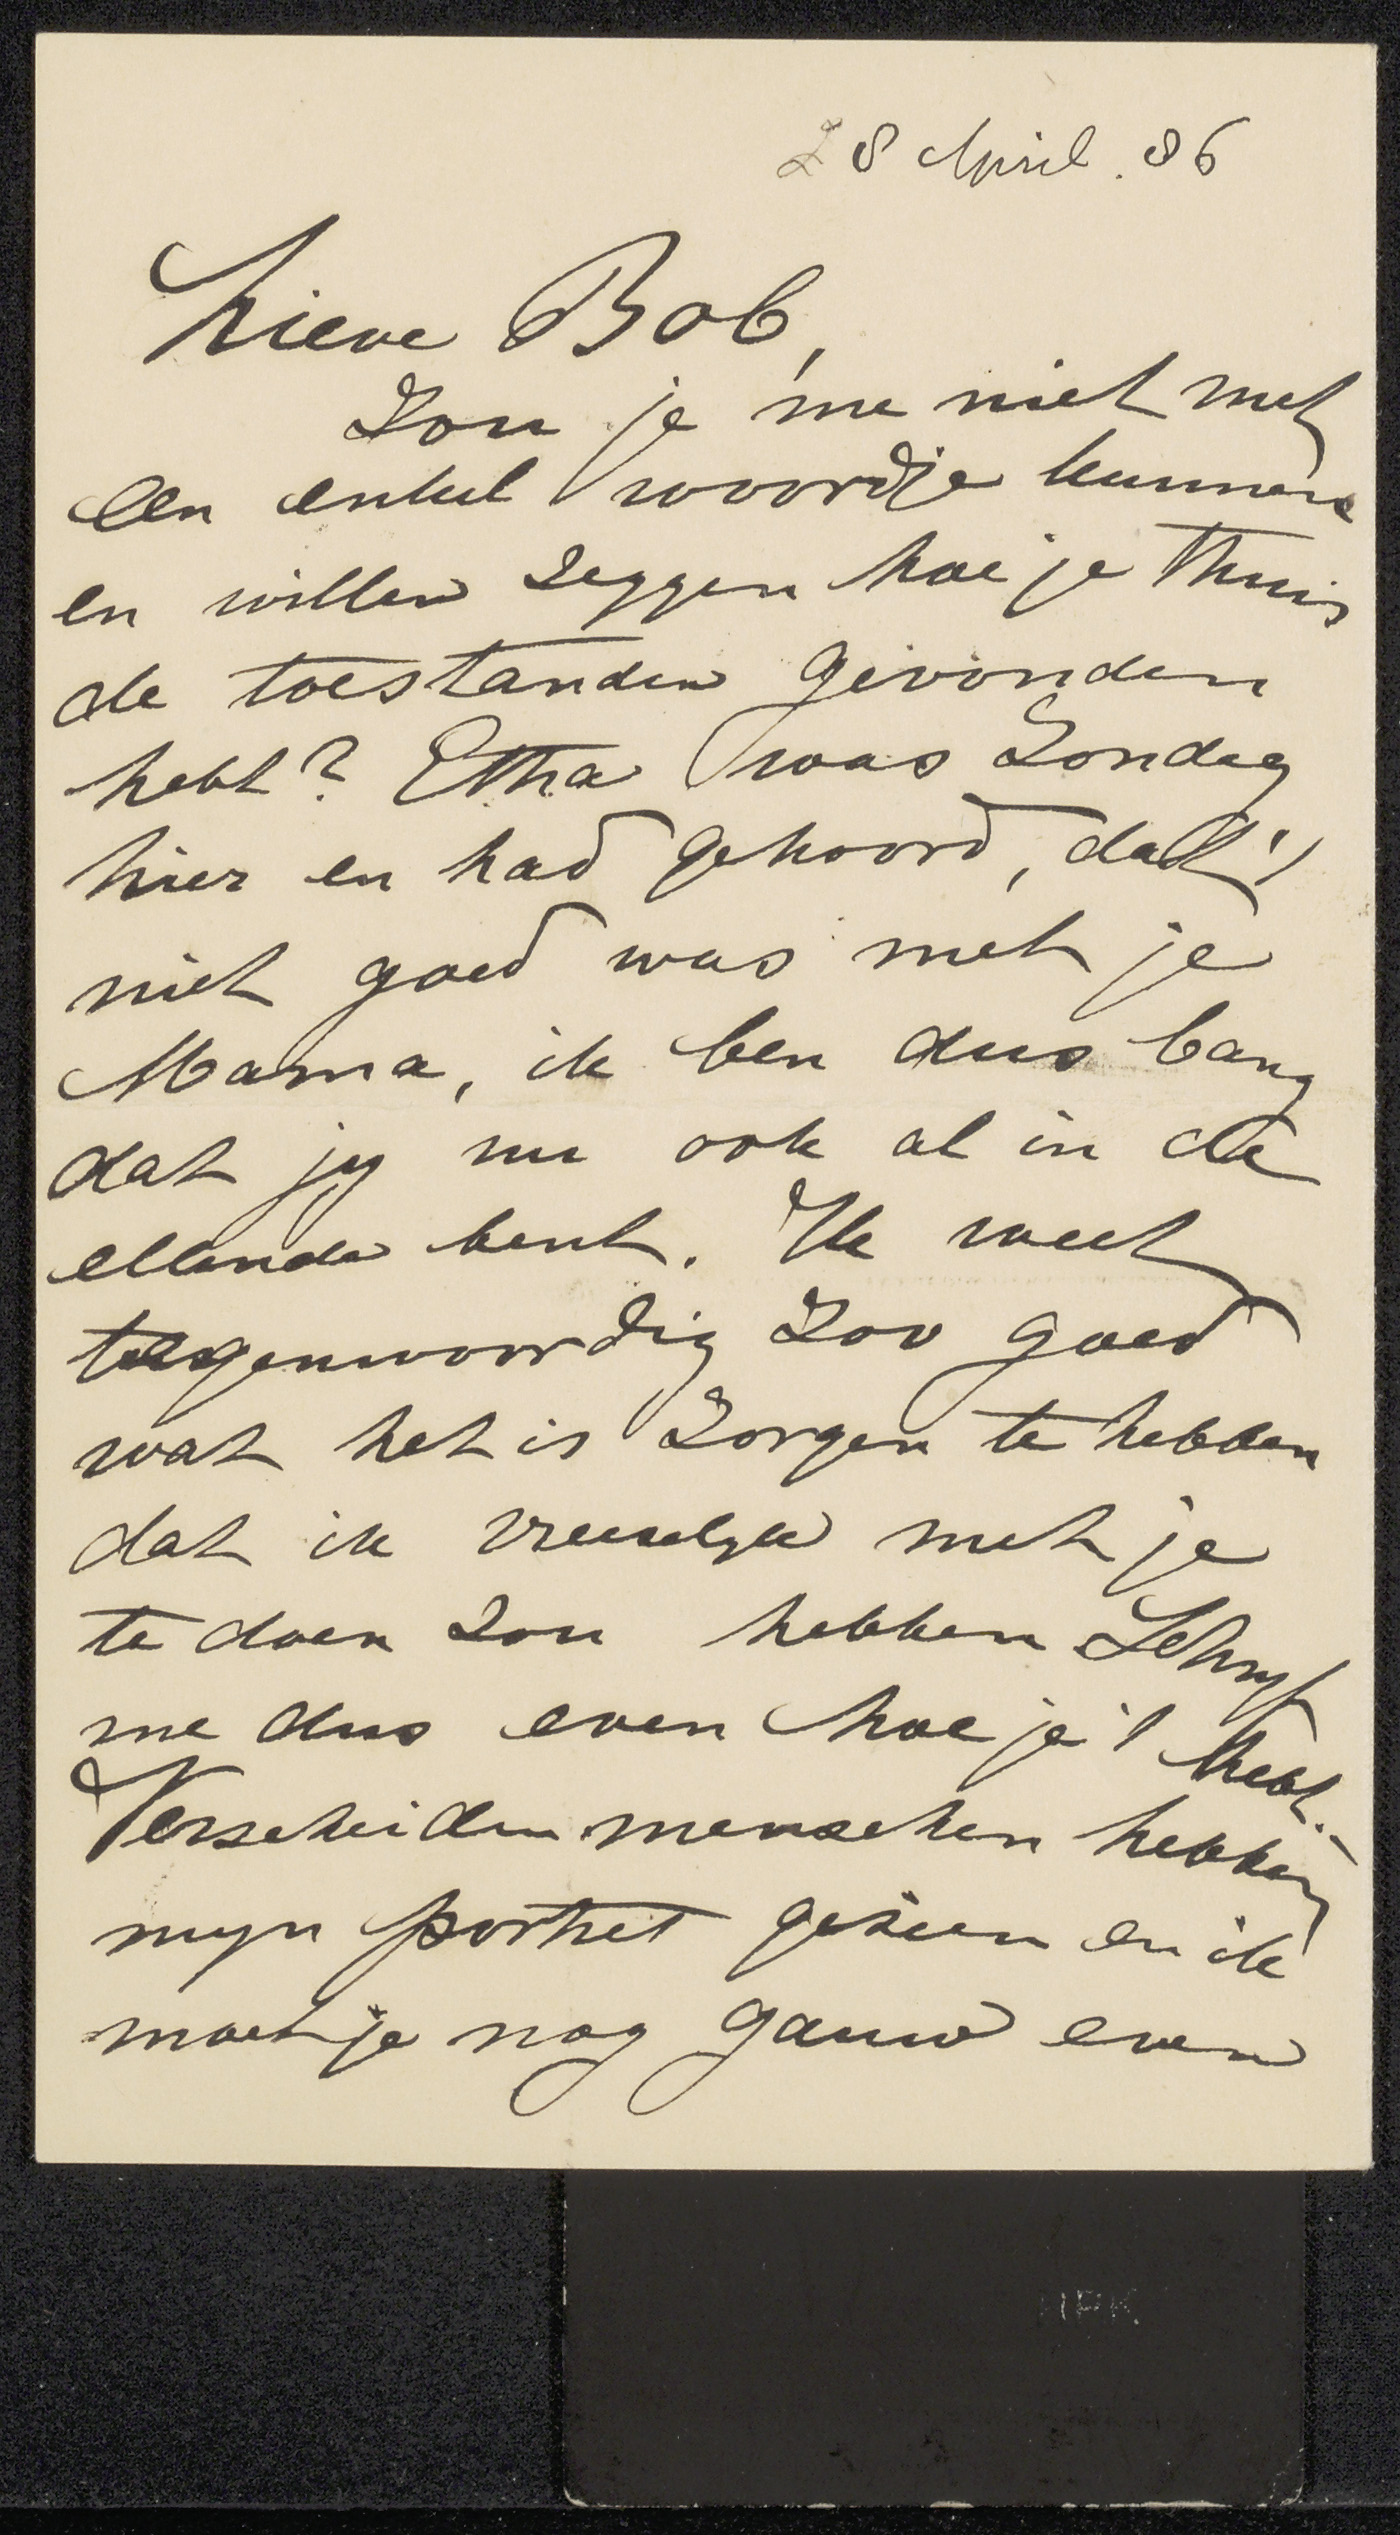 28 April. 86
Lieve Bob,
Zou je me niet met
een enkel woordje kunnen
en willen zeggen hoe je thuis
de toestanden gevonden
hebt? Etha was Zondag
hier en had gehoord, dat 't
niet goed was met je
Mama, ik ben dus bang
dat jy nu ook al in de
ellende bent. Ik weet
tegenwoordig zoo goed
wat het is zorgen te hebben
dat ik vreeselyk met je
te doen zou hebben Schryf
me dus even hoe je 't hebt.
Verscheiden menschen hebben
myn portret gezien en ik
moet je nog gauw even